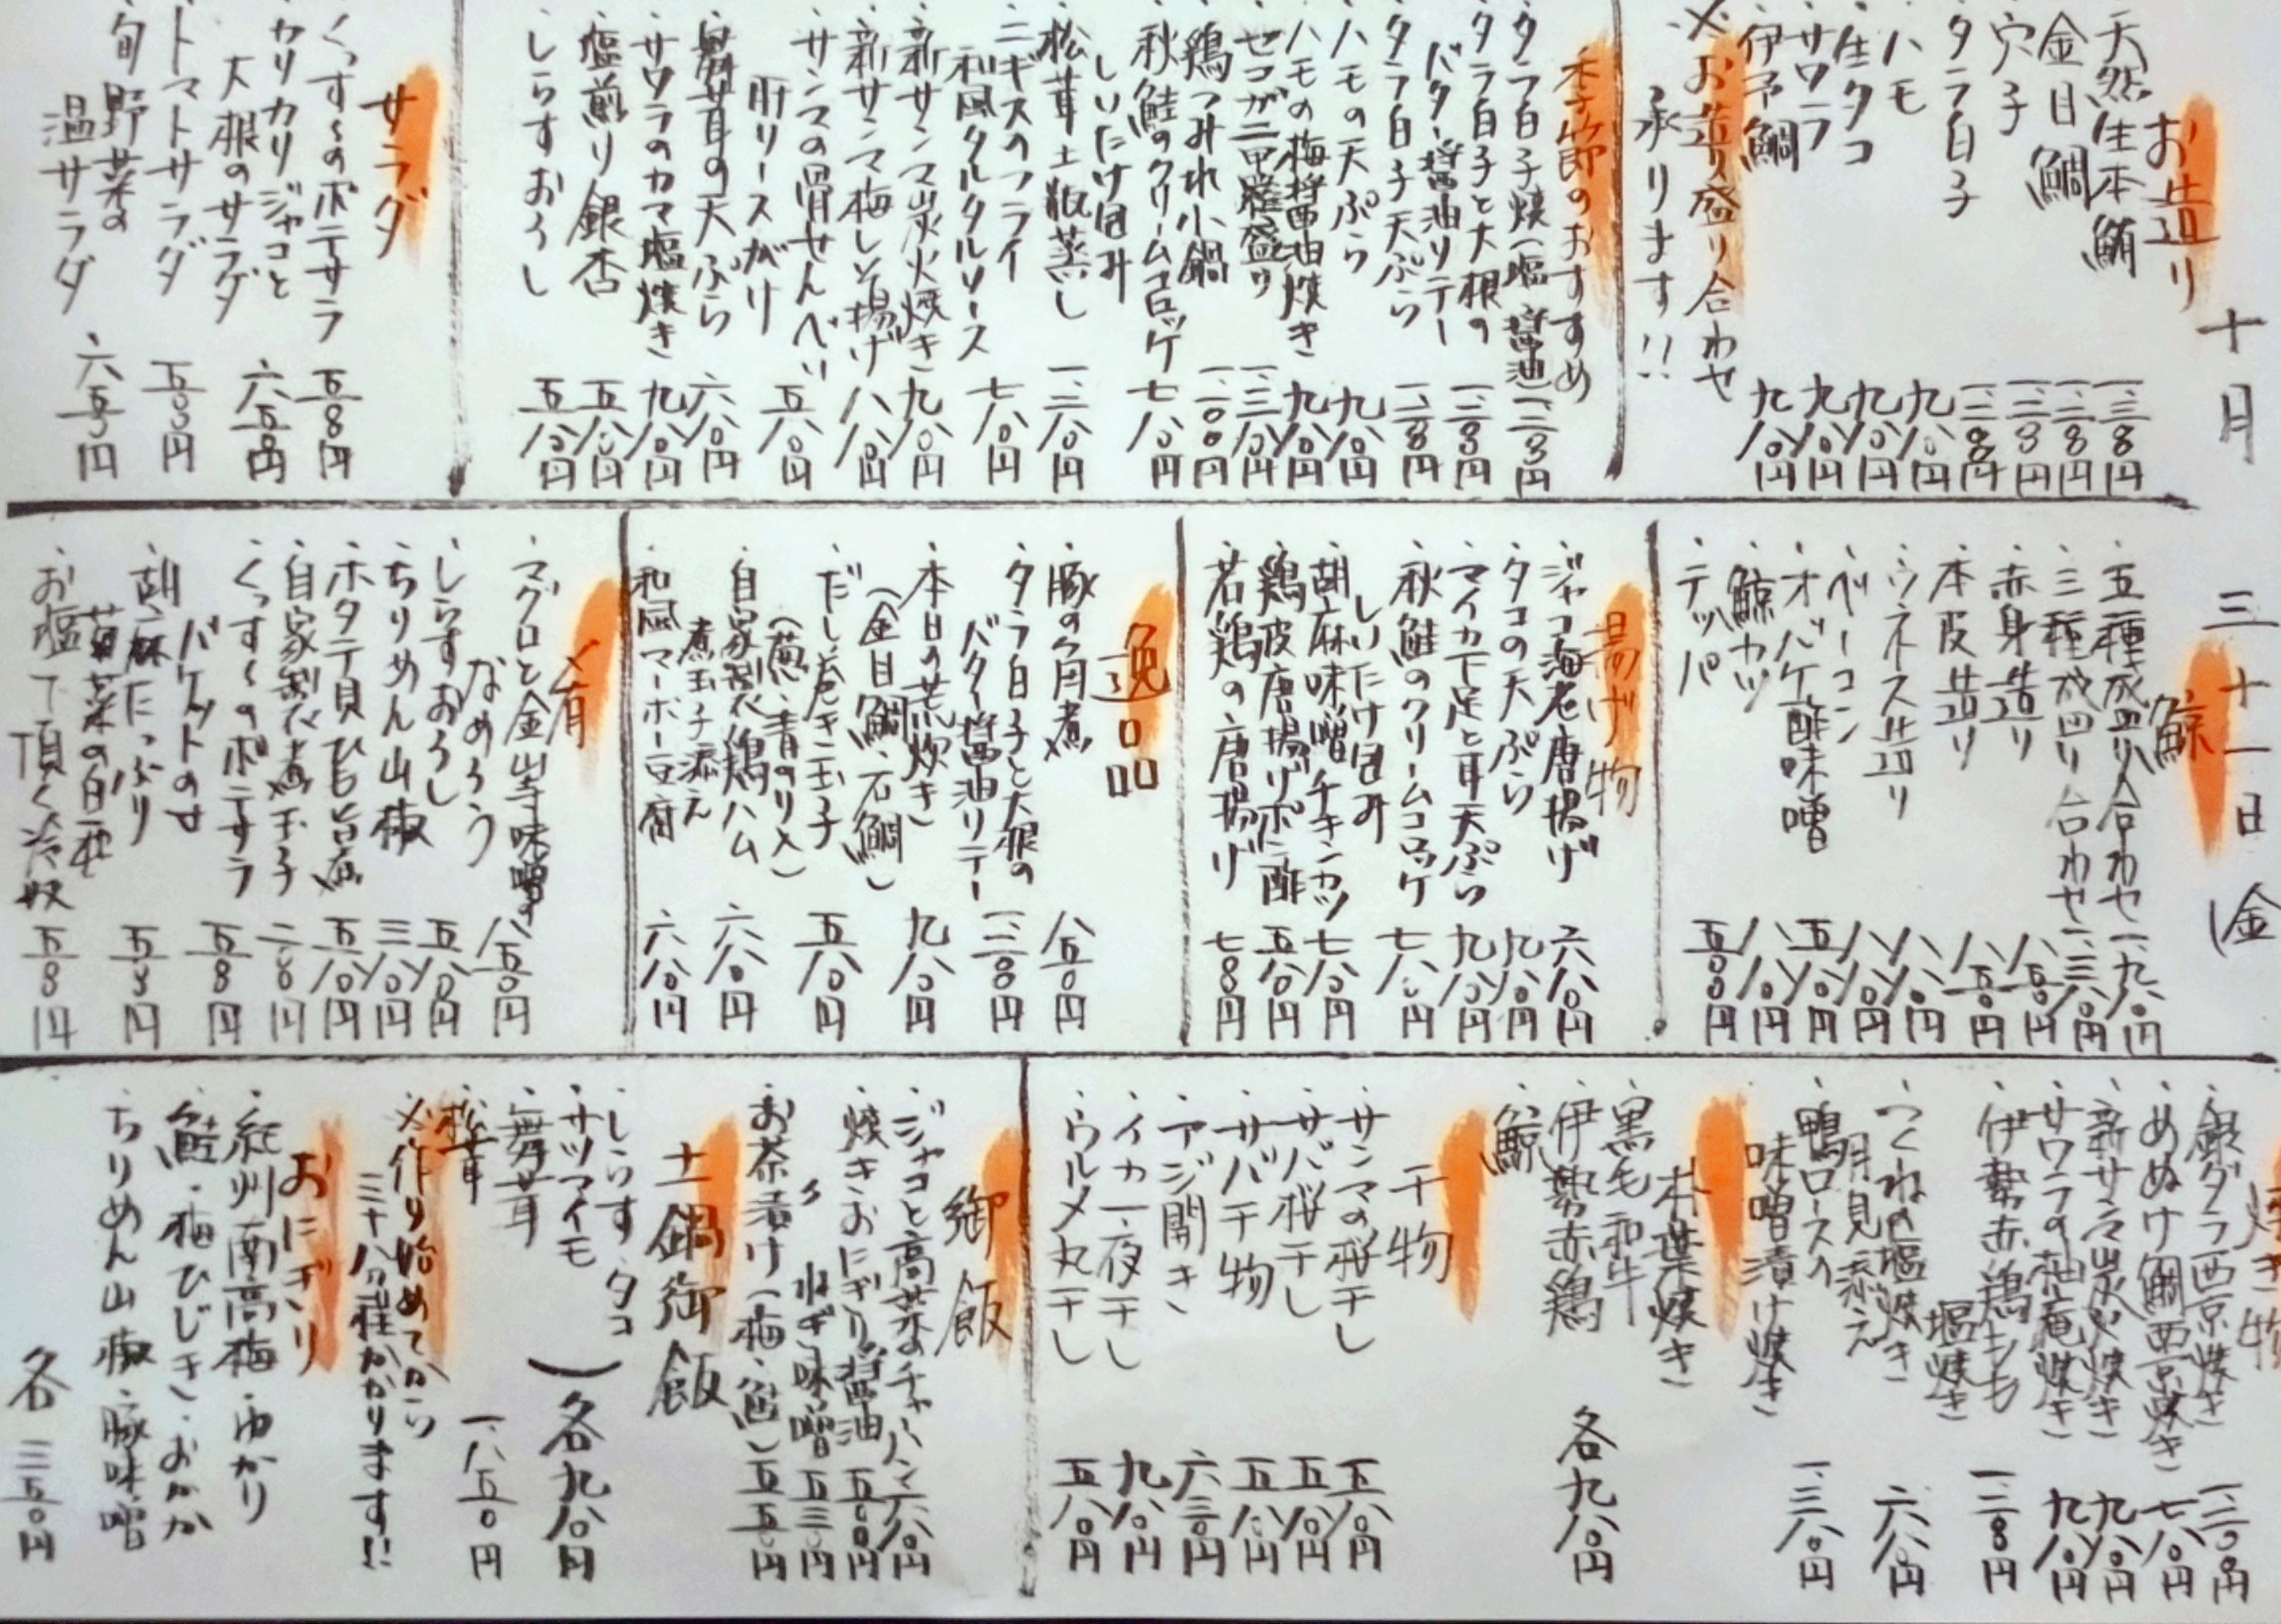 十月 三十一日 (金
お造り
・天然生本鮪 一、三〇〇円
・金目鯛 一、二〇〇円
・穴子
・タラ白子
・ハモ 九八〇円
・生タコ 九八〇円
・サワラ 九八〇円
・伊予鯛 九八〇円
※お造り盛り合わせ
承ります!!
季節のおすすめ
・タラ白子焼(塩・醤油)
・タラ白子と大根の
バター醤油ソテー
・タラ白子天ぷら
・ハモの天ぷら 九八〇円
・ハモの梅醤油焼き 九八〇円
・セコガニ甲羅盛り 一、三八〇円
・鶏つみれ小鍋
・秋鮭のクリームコロッケ
しいたけ包み 七八〇円
・松茸土瓶蒸し
・ニギスのフライ
和風タルタルソース 七八〇円
・新サンマ炭火焼き 九八〇円
・新サンマ梅しそ揚げ 八八〇円
・サンマの骨せんべい
肝ソースがけ 五八〇円
・舞茸の天ぷら 六八〇円
・サワラのカマ塩焼き 九八〇円
・塩煎り銀杏 五八〇円
・しらすおろし 五八〇円
サラダ
・くっす〜のポテサラ 五〇〇円
・カリカリジャコと
大根のサラダ 六五〇円
・トマトサラダ 五〇〇円
・旬野菜の
温サラダ 六五〇円
鯨
・五種盛り合わせ 一、九八〇円
・三種盛り合わせ 一、三八〇円
・赤身造り 八五〇円
・本皮造り 八五〇円
・ウネス造り 八八〇円
・ベーコン 八八〇円
・オバケ酢味噌 五八〇円
・鯨カツ 八八〇円
・テッパ 五〇〇円
揚げ物
・ジャコ海老唐揚げ 六八〇円
・タコの天ぷら 九八〇円
・マイカ下足と耳天ぷら 九八〇円
・秋鮭のクリームコロッケ
しいたけ包み 七八〇円
・胡麻味噌チキンカツ 七八〇円
・鶏皮唐揚げポン酢 五八〇円
・若鶏の唐揚げ 七〇〇円
逸品
・豚の角煮 八五〇円
・タラ白子と大根の
バター醤油ソテー
・本日の荒炊き
(金目鯛・石鯛) 九八〇円
・だし巻き玉子
(葱・青のり入) 五八〇円
・自家製鶏ハム
煮玉子添え 六八〇円
・和風マーボー豆腐 六八〇円
〆肴
・マグロと金山寺味噌の
なめろう 八五〇円
・しらすおろし 五八〇円
・ちりめん山椒 三八〇円
・ホタテ貝ひも旨煮 五八〇円
・自家製煮玉子 二〇〇円
・くっす〜のポテサラ
バケットのせ 五〇〇円
・胡麻たっぷり
菊菜の白和 五〇〇円
・お塩で頂く冷奴 五〇〇円
焼き物
・銀ダラ西京焼き
・めぬけ鯛西京焼き 七八〇円
・新サンマ炭火焼き 九八〇円
・サワラの柚庵焼き 九八〇円
・伊勢赤鶏もも
塩焼き
・つくねの塩焼き
月見添え 六八〇円
・鴨ロースの
味噌漬け焼き 一、三八〇円
朴葉焼き
・黒毛和牛
・伊勢赤鶏
・鯨
各九八〇円
干物
・サンマの桜干し 五八〇円
・サバ桜干し 五八〇円
・サバ干物 五八〇円
・アジ開き 六三〇円
・イカ一夜干し 九八〇円
・ウルメ丸干し 五八〇円
御飯
・ジャコと高菜のチャーハン 六八〇円
・焼きおにぎり醤油 五〇〇円
・〃 ねぎ味噌 五三〇円
・お茶漬け(梅・鮭) 五五〇円
土鍋御飯
・しらす・タコ
・サツマイモ
・舞茸
各九八〇円
・松茸 一、八五〇円
※作り始めてから
三十分程かかります!!
おにぎり
・紀州南高梅・ゆかり
・鮭・梅ひじき・おかか
・ちりめん山椒・豚味噌
各三五〇円